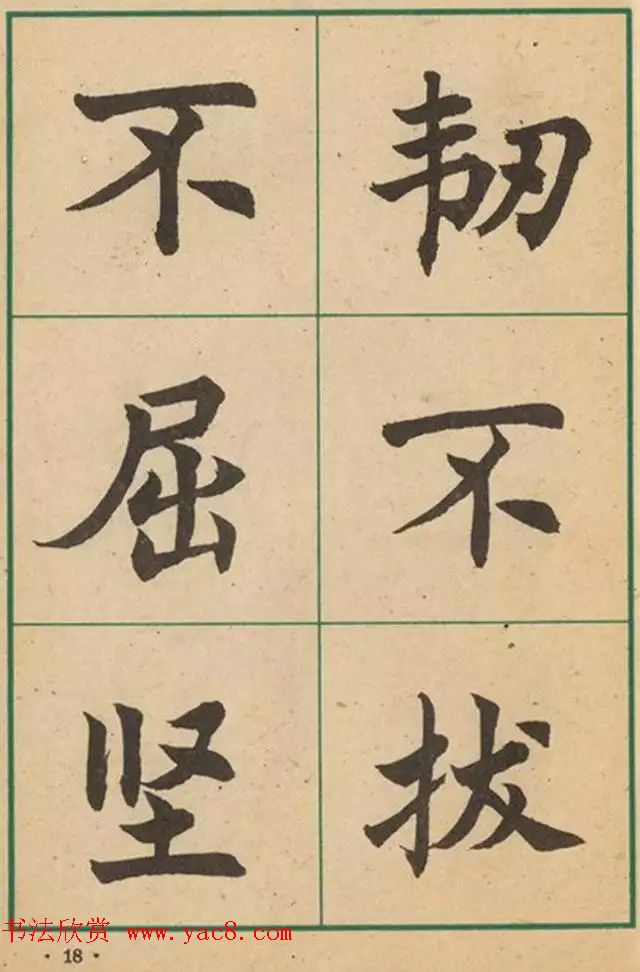 韧不拔
不屈坚
书法欣赏 www.yac8.com
·18·